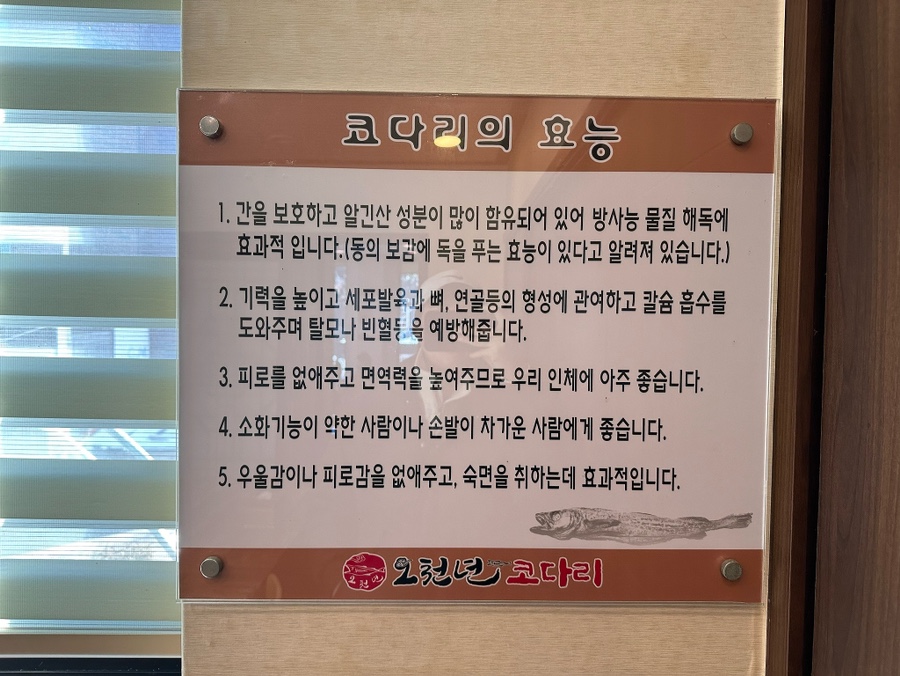 코다리의 효능
1. 간을 보호하고 알긴산 성분이 많이 함유되어 있어 방사능 물질 해독에
효과적 입니다.(동의 보감에 독을 푸는 효능이 있다고 알려져 있습니다.)
2. 기력을 높이고 세포발육과 뼈, 연골등의 형성에 관여하고 칼슘 흡수를
도와주며 탈모나 빈혈등을 예방해줍니다.
3. 피로를 없애주고 면역력을 높여주므로 우리 인체에 아주 좋습니다.
4. 소화기능이 약한 사람이나 손발이 차가운 사람에게 좋습니다.
5. 우울감이나 피로감을 없애주고, 숙면을 취하는데 효과적입니다.
오천년 오천년 코다리